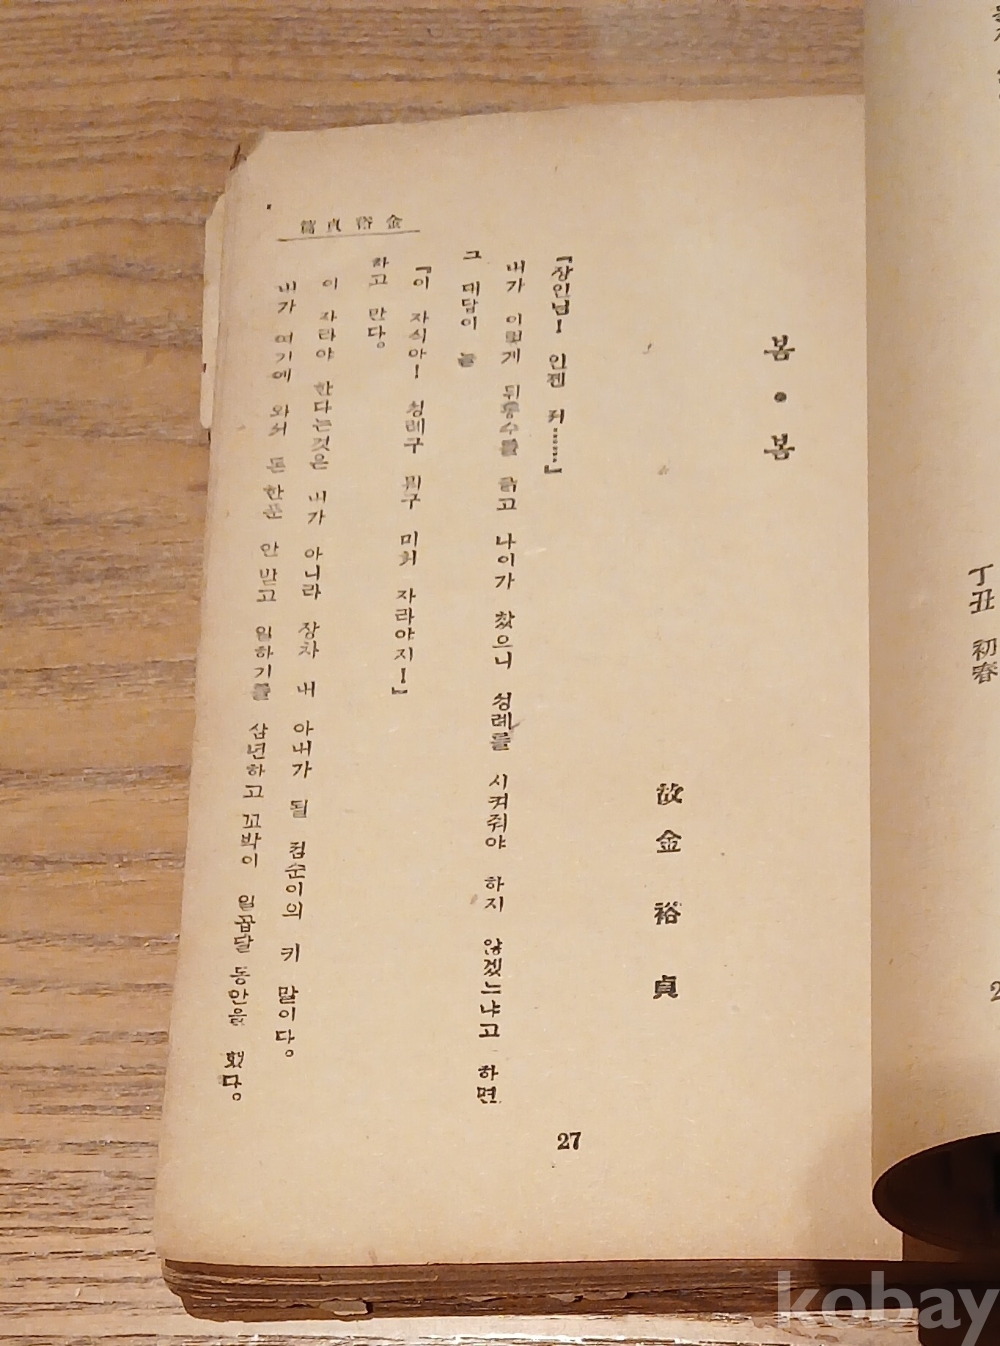 丁丑 初春
봄・봄
故 金 裕 貞
『장인님! 인젠 저……』
내가 이렇게 뒤통수를 긁고 나이가 찼으니 성례를 시켜줘야 하지 않겠느냐고 하면
그 대답이 늘
『이 자식아! 성례구 뭐구 미처 자라야지!』
하고 만다。
이 자라야 한다는것은 내가 아니라 장차 내 아내가 될 점순이의 키 말이다。
내가 여기에 와서 돈 한푼 안 받고 일하기를 삼년하고 꼬박이 일곱달 동안을 했다。
金裕貞篇
27
kobay